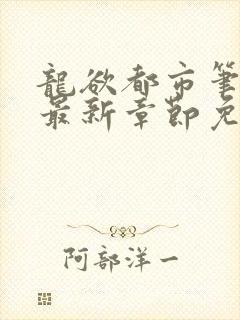 龍欲都市筆
最新章節免
阿部洋一